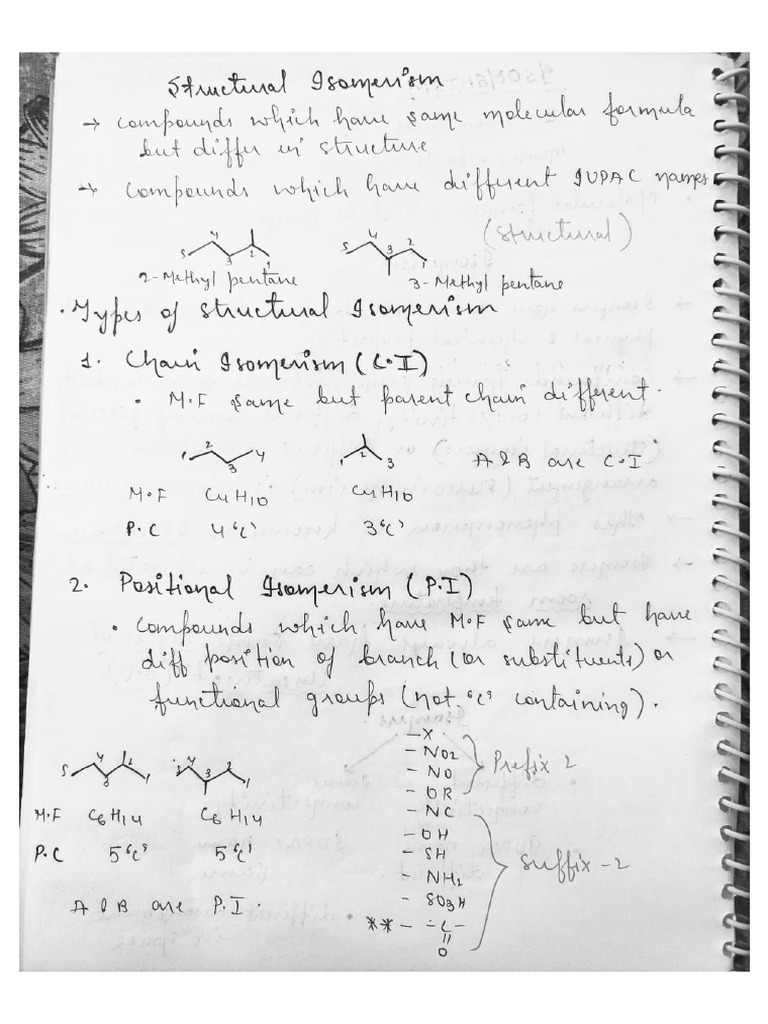 Structural Isomerism
→ compounds which have same molecular formula
but differ in structure
→ compounds which have different IUPAC names
(structural)
5 4 3 2 1
5 4 3 2 1
2-Methyl pentane
3-Methyl pentane
• Types of Structural Isomerism
1. Chain Isomerism (C.I)
• M.F same but parent chain different.
1 2 3 4
1 2 3
A & B are C.I
M.F C4H10 C4H10
P.C 4 'C' 3 'C'
2. Positional Isomerism (P.I)
• compounds which have M.F same but have
diff position of branch (or substituents) or
functional groups (not 'C' containing).
5 4 3 2 1
5 4 3 2 1
M.F C6H14 C6H14
P.C 5 'C' 5 'C'
A & B are P.I.
- X
- NO2
- NO
- OR
Prefix 2
- NC
- OH
- SH
- NH2
- SO3H
** - -C-
||
O
Suffix - 2